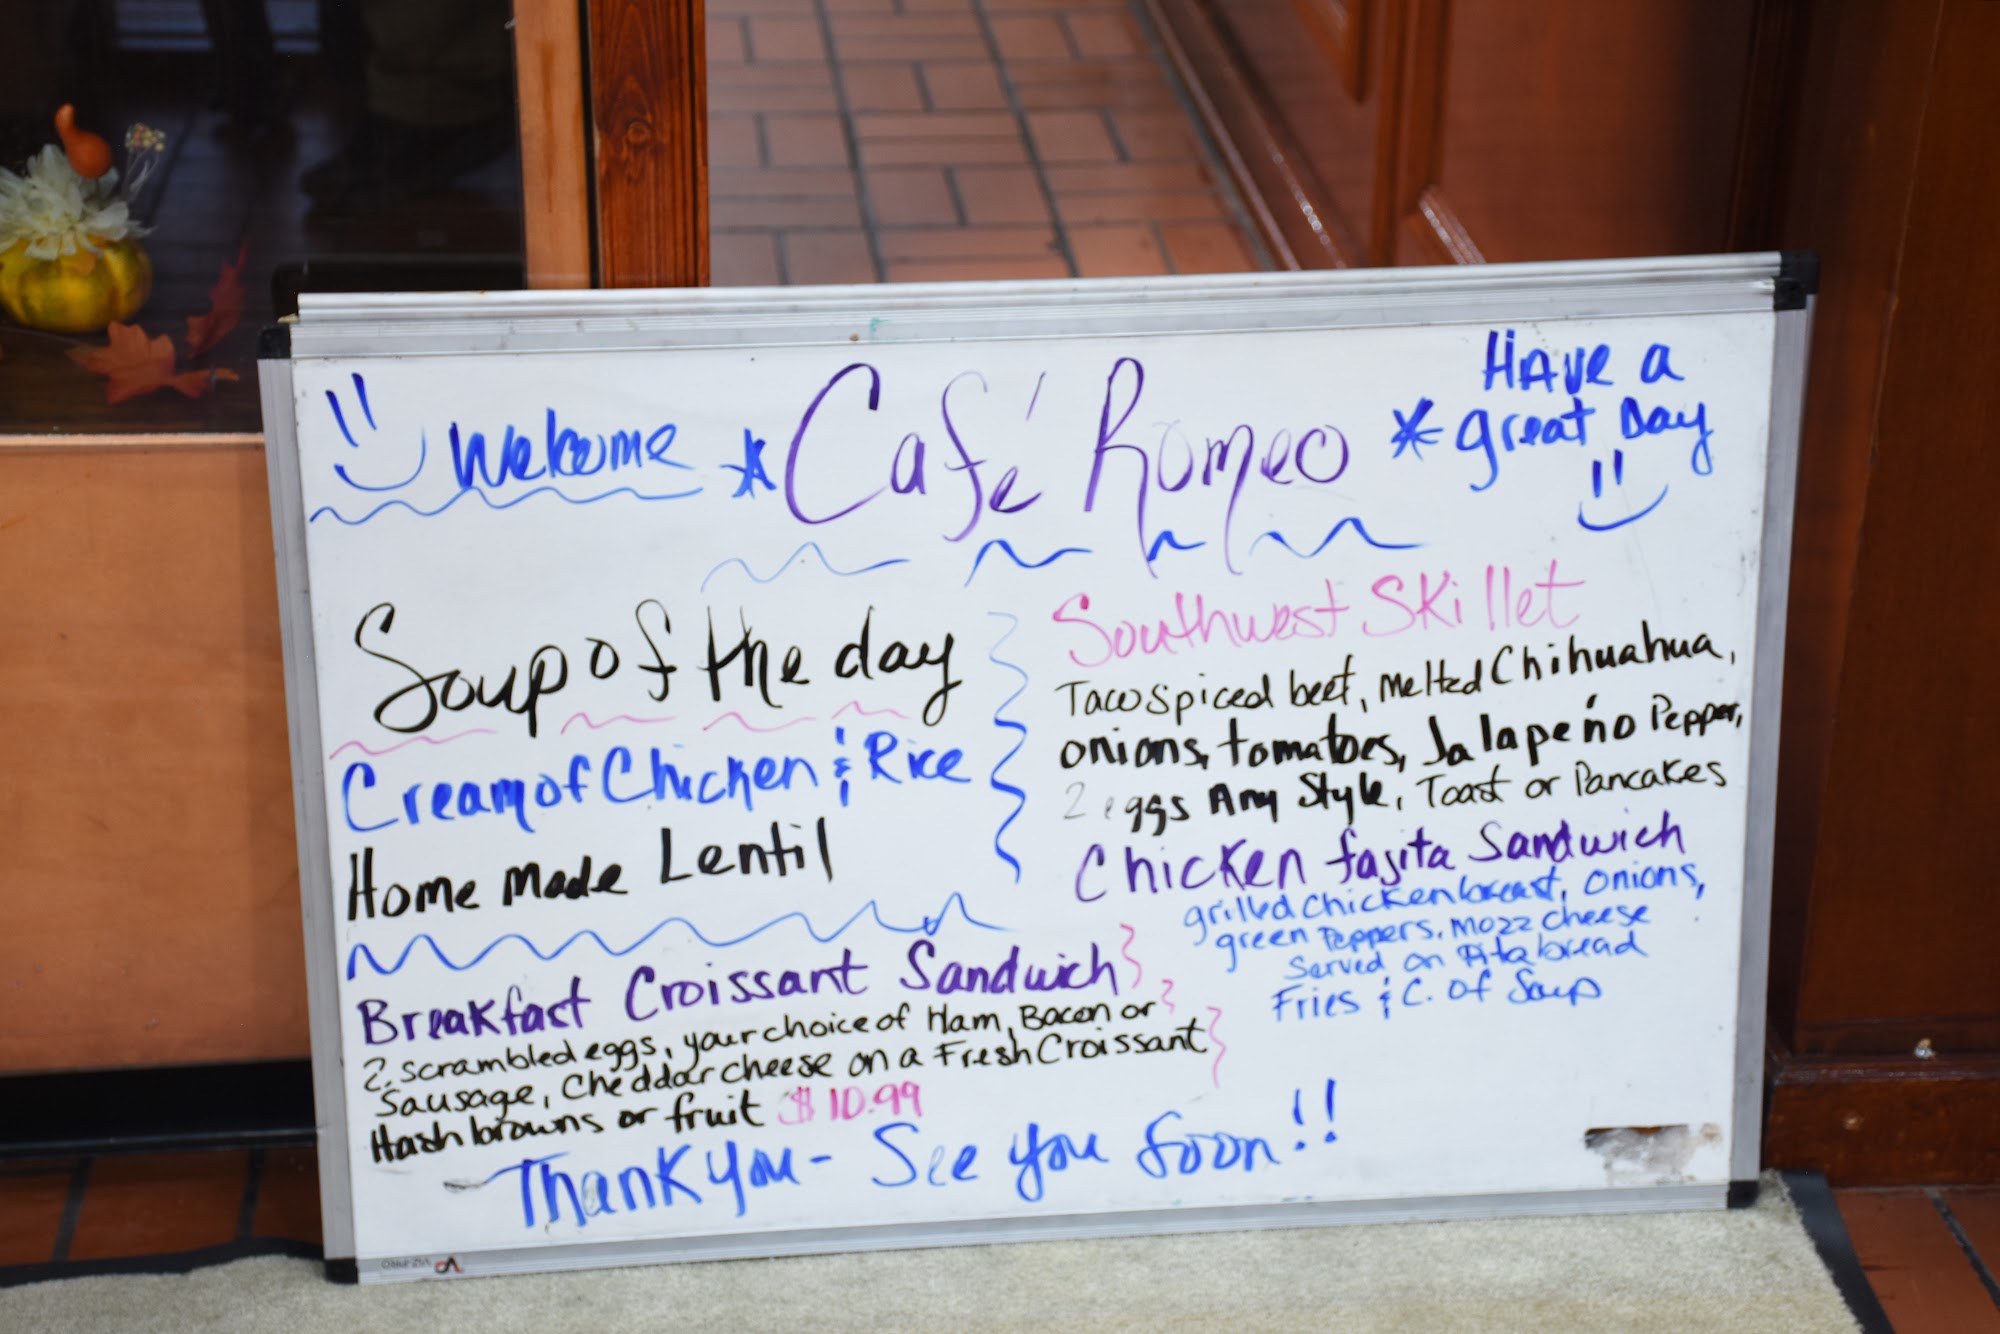 Welcome * Café Romeo * Have a
great Day
Soup of the day
Cream of Chicken & Rice
Home Made Lentil
Southwest Skillet
Taco spiced beef, Melted Chihuahua,
onions, tomatoes, Jalapeño Pepper,
2 eggs Any Style, Toast or Pancakes
Chicken fajita Sandwich
grilled chicken breast, onions,
green Peppers, mozz cheese
Served on Pita bread
Fries & C. of Soup
Breakfast Croissant Sandwich
2 scrambled eggs, your choice of Ham, Bacon or
Sausage, Cheddar cheese on a Fresh Croissant
Hash browns or fruit $10.99
Thank you - See you Soon!!